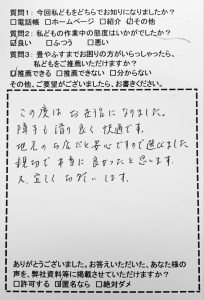 質問1: 今回私どもをどちらでお知りになりましたか?
□電話帳 □ホームページ □紹介 ☑その他
質問2: 私どもの作業中の態度はいかがでしたか?
☑良い □ふつう □悪い
質問3: 畳やふすまでお困りの方がいらっしゃったら、
私どもをご推薦いただけますか?
☑推薦できる □推薦できない □分からない
その他、ご要望がございましたら、お書きください。
この度はお世話になりました。
障子も滑り良く快適です。
地元のお店だと安心ですので選びました。
親切で本当に良かったと思います。
又、宜しくお願いします。
ありがとうございました。お答えいただいた、あなた様の
声を、弊社資料等に掲載させていただけますか?
□許可する ☑匿名なら □絶対ダメ